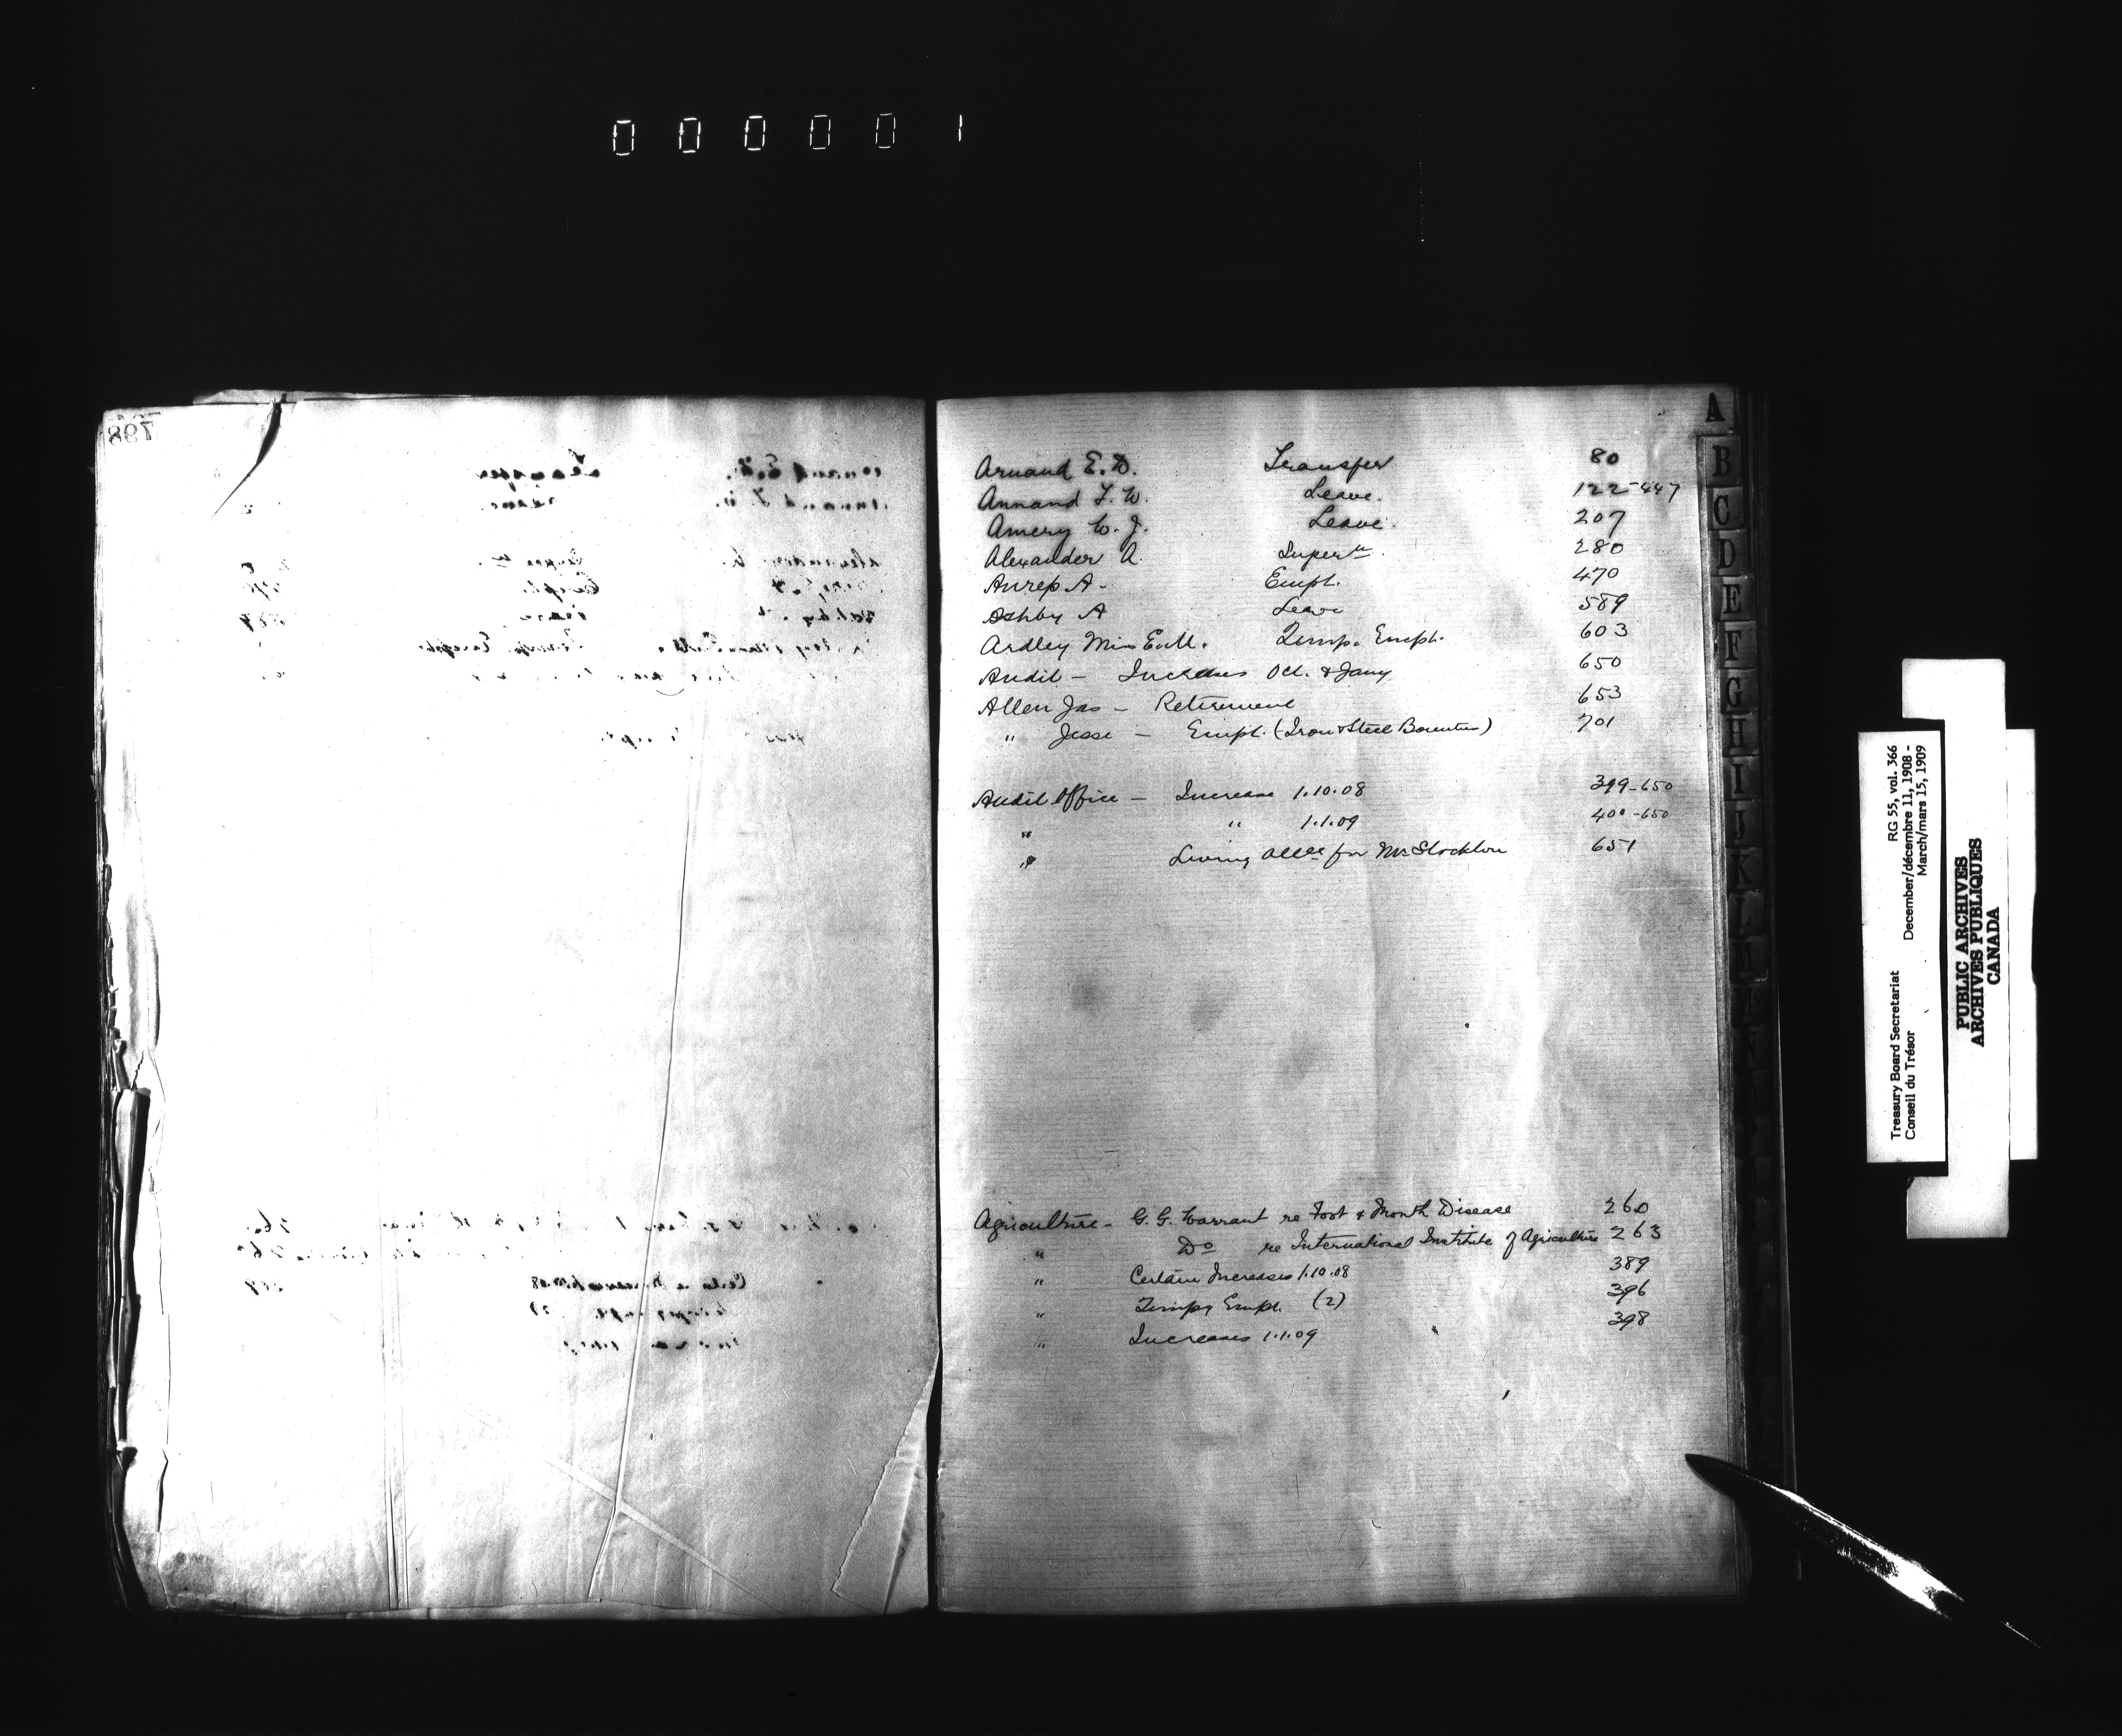 000001
798
A
Arnaud E. D. Transfer 80
Annand F. W. Leave. 122-447
Amery W. J. Leave. 207
Alexander A. Super<sup>n</sup>. 280
Anrep A- Empt. 470
Ashby A Leave 589
Ardley Miss E.M. Temp. Empt. 603
Audit - Increases Oct. & Jany 650
Allen Jas - Retirement 653
" Jesse - Empt. (Iron & Steel Bounties) 701
Audit Office - Increase 1.10.08 399-650
" " 1.1.09 400-650
" Living Allce for Mr Stockton 651
Agriculture - G. G. Warrant re Foot & Mouth Disease 260
" Do re International Institute of Agriculture 263
" Certain Increases 1.10.08 389
" Tempy Empt. (2) 396
" Increases 1.1.09 398
B
C
D
E
F
G
H
I
J
K
L
Treasury Board Secretariat RG 55, vol. 366
Conseil du Trésor December/décembre 11, 1908 -
March/mars 15, 1909
PUBLIC ARCHIVES
ARCHIVES PUBLIQUES
CANADA